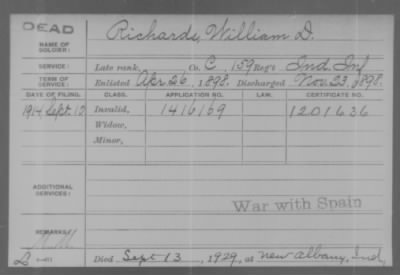 DEAD
NAME OF SOLDIER: Richards, William D.
SERVICE: Late rank, Co. C, 159 Reg't Ind. Inf
TERM OF SERVICE: Enlisted Apr 26, 1898. Discharged Nov. 23, 1898.
DATE OF FILING. CLASS. APPLICATION NO. LAW. CERTIFICATE NO.
1914 Sept. 12 Invalid, 1416169 1201636
Widow,
Minor,
ADDITIONAL SERVICES:
War with Spain
REMARKS:
Died Sept 13, 1929, at New Albany, Ind,